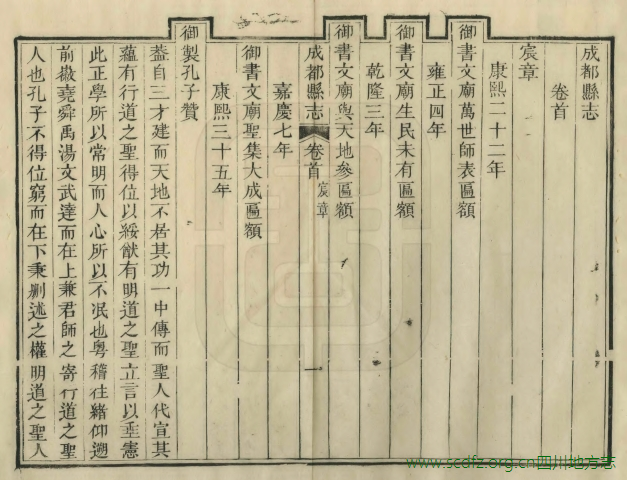 成都縣志
卷首
宸章
康熙二十二年
御書文廟萬世師表匾額
雍正四年
御書文廟生民未有匾額
乾隆三年
御書文廟與天地參匾額
成都縣志 卷首 宸章 一
嘉慶七年
御書文廟聖集大成匾額
康熙三十五年
御製孔子贊
蓋自三才建而天地不居其功一中傳而聖人代宣其
蘊有行道之聖得位以綏猷有明道之聖立言以垂憲
此正學所以常明而人心所以不泯也粵稽往緒仰遡
前徽堯舜禹湯文武達而在上兼君師之寄行道之聖
人也孔子不得位窮而在下秉刪述之權明道之聖人
www.scdfz.org.cn四川地方志